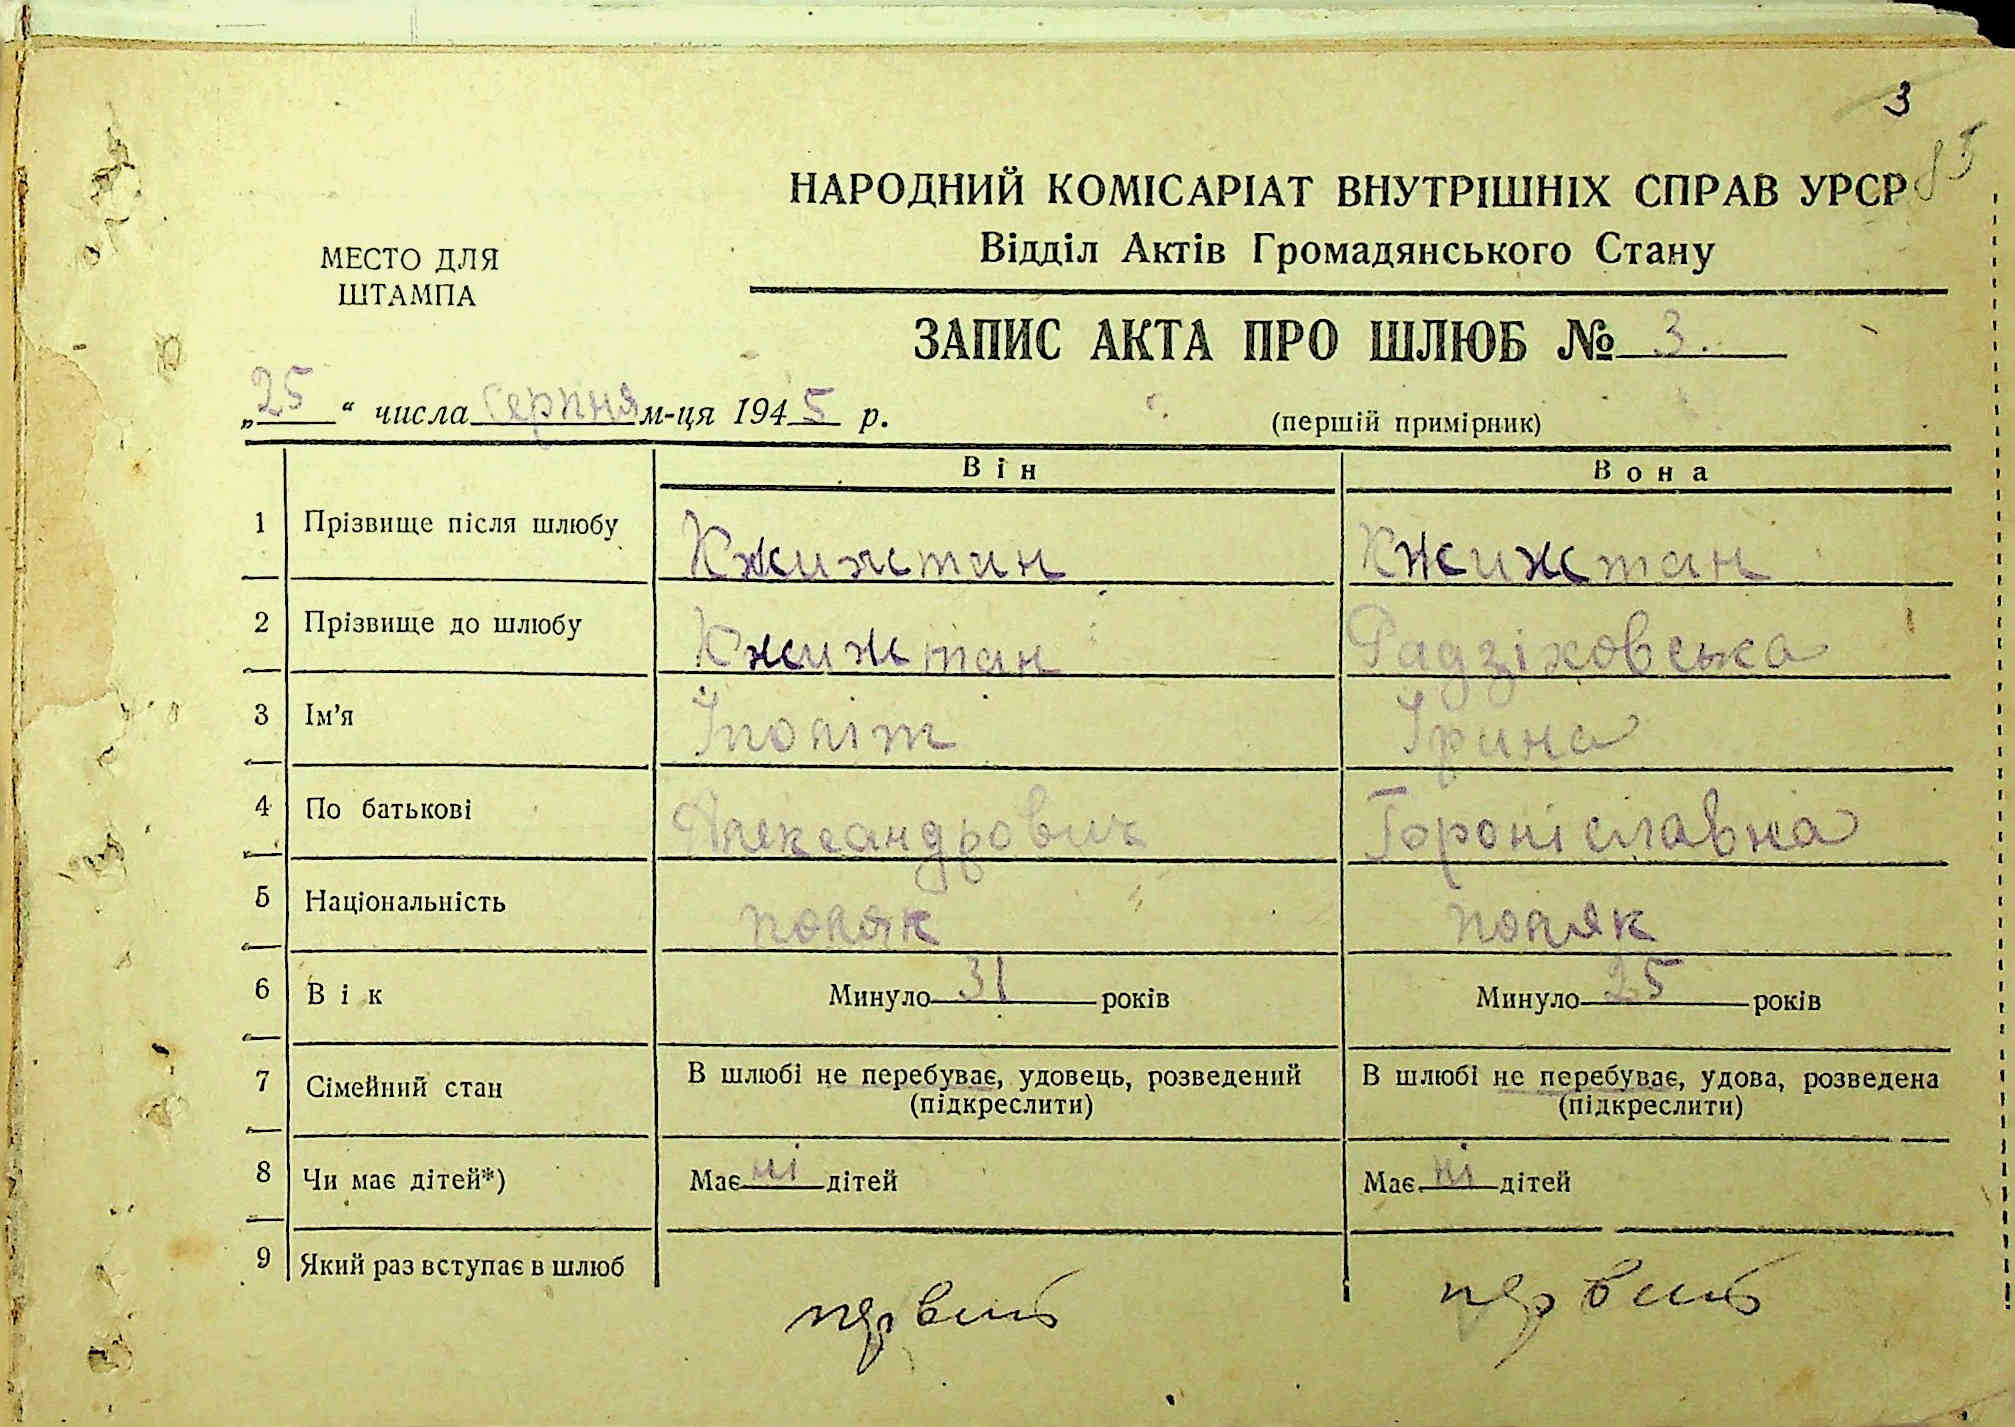 3
85
НАРОДНИЙ КОМІСАРІАТ ВНУТРІШНІХ СПРАВ УРСР
Відділ Актів Громадянського Стану
МЕСТО ДЛЯ
ШТАМПА
ЗАПИС АКТА ПРО ШЛЮБ № 3.
„25“ числа серпня м-ця 1945 р.
(першій примірник)
Він Вона
1 Прізвище після шлюбу Кжижтан Кжижтан
2 Прізвище до шлюбу Кжижтан Радзіховська
3 Ім'я Іполіт Ірина
4 По батькові Александрович Броніславна
5 Національність поляк поляк
6 Вік Минуло 31 років Минуло 25 років
7 Сімейний стан В шлюбі не перебуває, удовець, розведений В шлюбі не перебуває, удова, розведена
(підкреслити) (підкреслити)
8 Чи має дітей*) Має ні дітей Має ні дітей
9 Який раз вступає в шлюб
первий первий